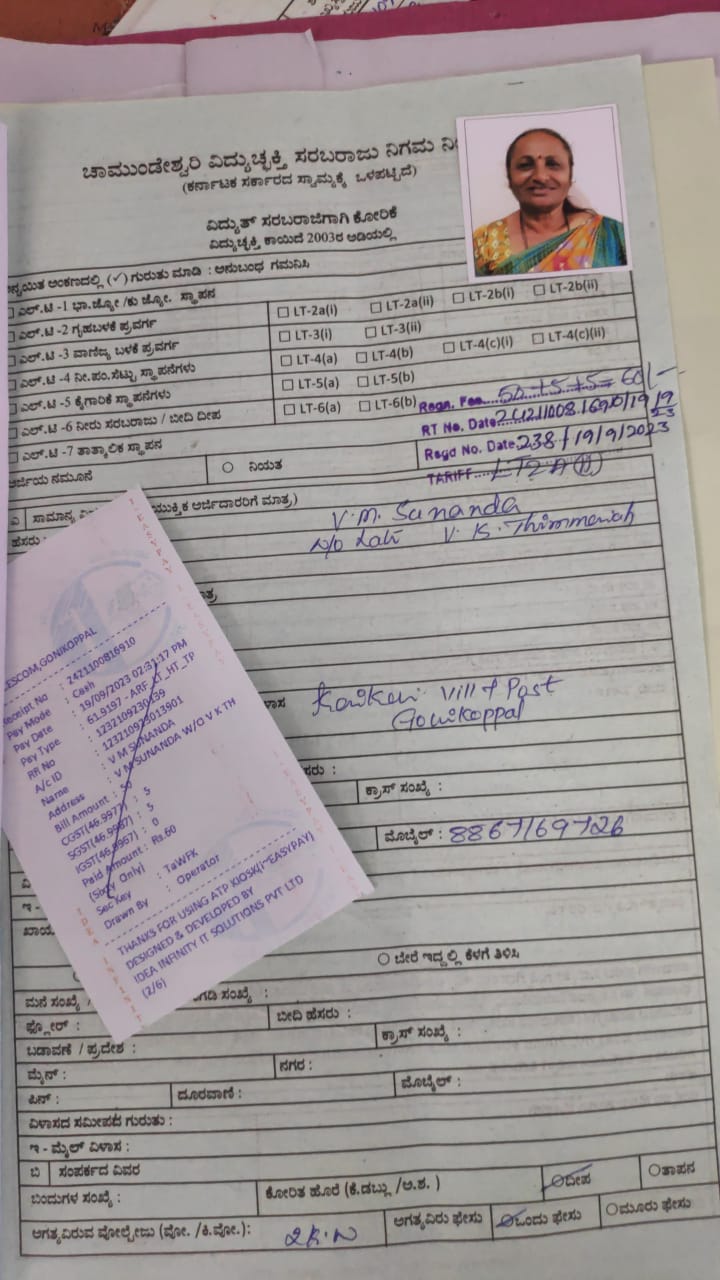 ಚಾಮುಂಡೇಶ್ವರಿ ವಿದ್ಯುಚ್ಛಕ್ತಿ ಸರಬರಾಜು ನಿಗಮ
(ಕರ್ನಾಟಕ ಸರ್ಕಾರದ ಸ್ವಾಮ್ಯಕ್ಕೆ ಒಳಪಟ್ಟಿದೆ)
ವಿದ್ಯುತ್ ಸರಬರಾಜಿಗಾಗಿ ಕೋರಿಕೆ
ವಿದ್ಯುಚ್ಛಕ್ತಿ ಕಾಯಿದೆ 2003ರ ಅಡಿಯಲ್ಲಿ
ಅಂಕಣದಲ್ಲಿ (✓) ಗುರುತು ಮಾಡಿ : ಅನುಬಂಧ ಗಮನಿಸಿ
ಎಲ್.ಟಿ -1 ಭಾ.ಜ್ಯೋ /ಕು ಜ್ಯೋ. ಸ್ಥಾಪನ
ಎಲ್.ಟಿ -2 ಗೃಹಬಳಕೆ ಪ್ರವರ್ಗ LT-2a(i) LT-2a(ii) LT-2b(i) LT-2b(ii)
ಎಲ್.ಟಿ -3 ವಾಣಿಜ್ಯ ಬಳಕೆ ಪ್ರವರ್ಗ LT-3(i) LT-3(ii)
ಎಲ್.ಟಿ -4 ನೀ.ಪಂ.ಸೆಟ್ಟು ಸ್ಥಾಪನೆಗಳು LT-4(a) LT-4(b) LT-4(c)(i) LT-4(c)(ii)
ಎಲ್.ಟಿ -5 ಕೈಗಾರಿಕೆ ಸ್ಥಾಪನೆಗಳು LT-5(a) LT-5(b)
ಎಲ್.ಟಿ -6 ನೀರು ಸರಬರಾಜು / ಬೀದಿ ದೀಪ LT-6(a) LT-6(b)
ಎಲ್.ಟಿ -7 ತಾತ್ಕಾಲಿಕ ಸ್ಥಾಪನ
Regn. Fee 50+5+5=60/-
RT No. Date 2421100816910/19/9/23
Regd No. Date 238/19/9/2023
TARIFF LT2A(ii)
ಅರ್ಜಿಯ ನಮೂನೆ ನಿಯತ
ಎ ಸಾಮಾನ್ಯ ಅರ್ಜಿದಾರರಿಗೆ ಮಾತ್ರ)
ಹೆಸರು : V.M. Sunanda
w/o Late V.K. Thimmaiah
Kaikeri Vill & Post
Gonikoppal
ಕ್ರಾಸ್ ಸಂಖ್ಯೆ :
ಮೊಬೈಲ್ : 8867169726
CESCOM,GONIKOPPAL
Receipt No : 2421100816910
Pay Mode : Cash
Pay Date : 19/09/2023 02:31:17 PM
Pay Type : 61.9197 - ARF_LT_HT_TP
RR No
A/c ID
Name : V M SUNANDA
Address : V M SUNANDA W/O V K TH
Bill Amount : 50
CGST(46.997) : 5
SGST(46.9967) : 5
IGST(46.9967) : 0
Paid Amount : Rs.60
(Sixty Only)
Sec Key : TaWFK
Drawn By : Operator
THANKS FOR USING ATP KIOSK(I-EASYPAY)
DESIGNED & DEVELOPED BY
IDEA INFINITY IT SOLUTIONS PVT LTD
(2/6)
ಬೇರೆ ಇದ್ದಲ್ಲಿ ಕೆಳಗೆ ತಿಳಿಸಿ
ಮನೆ ಸಂಖ್ಯೆ / ಸಂಖ್ಯೆ :
ಫ್ಲೋರ್ : ಬೀದಿ ಹೆಸರು :
ಬಡಾವಣೆ / ಪ್ರದೇಶ : ಕ್ರಾಸ್ ಸಂಖ್ಯೆ :
ಮೈನ್ : ನಗರ :
ಪಿನ್ : ದೂರವಾಣಿ : ಮೊಬೈಲ್ :
ವಿಳಾಸದ ಸಮೀಪದ ಗುರುತು :
ಇ - ಮೈಲ್ ವಿಳಾಸ :
ಬಿ ಸಂಪರ್ಕದ ವಿವರ
ಬಂದುಗಳ ಸಂಖ್ಯೆ : ಕೋರಿತ ಹೊರೆ (ಕೆ.ಡಬ್ಲು /ಅ.ಶ. ) ದೀಪ ತಾಪನ
ಅಗತ್ಯವಿರುವ ವೋಲ್ಟೇಜು (ವೋ. /ಕಿ.ವೋ.): 2K.W ಅಗತ್ಯವಿರು ಫೇಸು ಒಂದು ಫೇಸು ಮೂರು ಫೇಸು